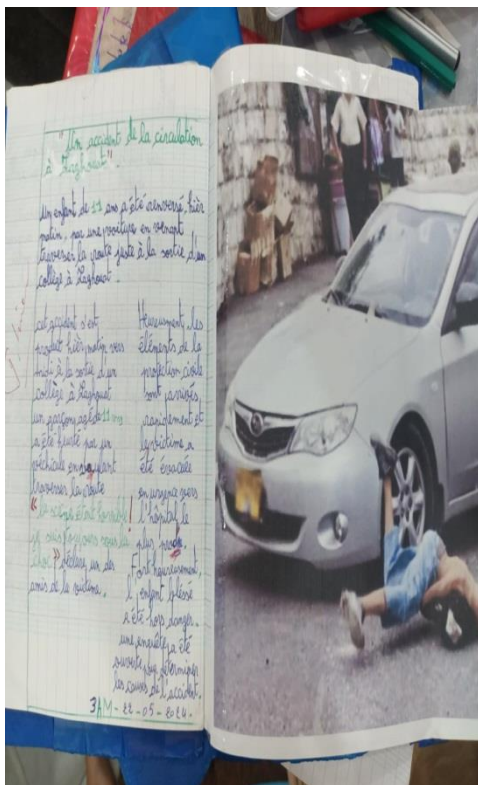 "Un accident de la circulation
à Laghouat".
Un enfant de 11 ans a été renversé, hier
matin, par une voiture en venant
traverser la route juste à la sortie d'un
collège à Laghouat.
cet accident s'est
produit hier matin vers
midi à la sortie d'un
collège à Laghouat
un garçons agé de 11 ans
a été par un
véhicule en voulant
traverser la route
"la scène était horrible!
je suis toujours sous le
choc" déclare un des
amis de la victime.
Heureusment, les
éléments de la
protection civile
sont arrivés,
rapidement et
la victime a
été évacuée
en urgence vers
l'hôpital le
plus proche.
Fort heureusement,
l'enfant blessé
a été hors danger.
une enquête a été
ouverte pour déterminer
les causes de l'accident.
3AM - 22 - 05 - 2024.